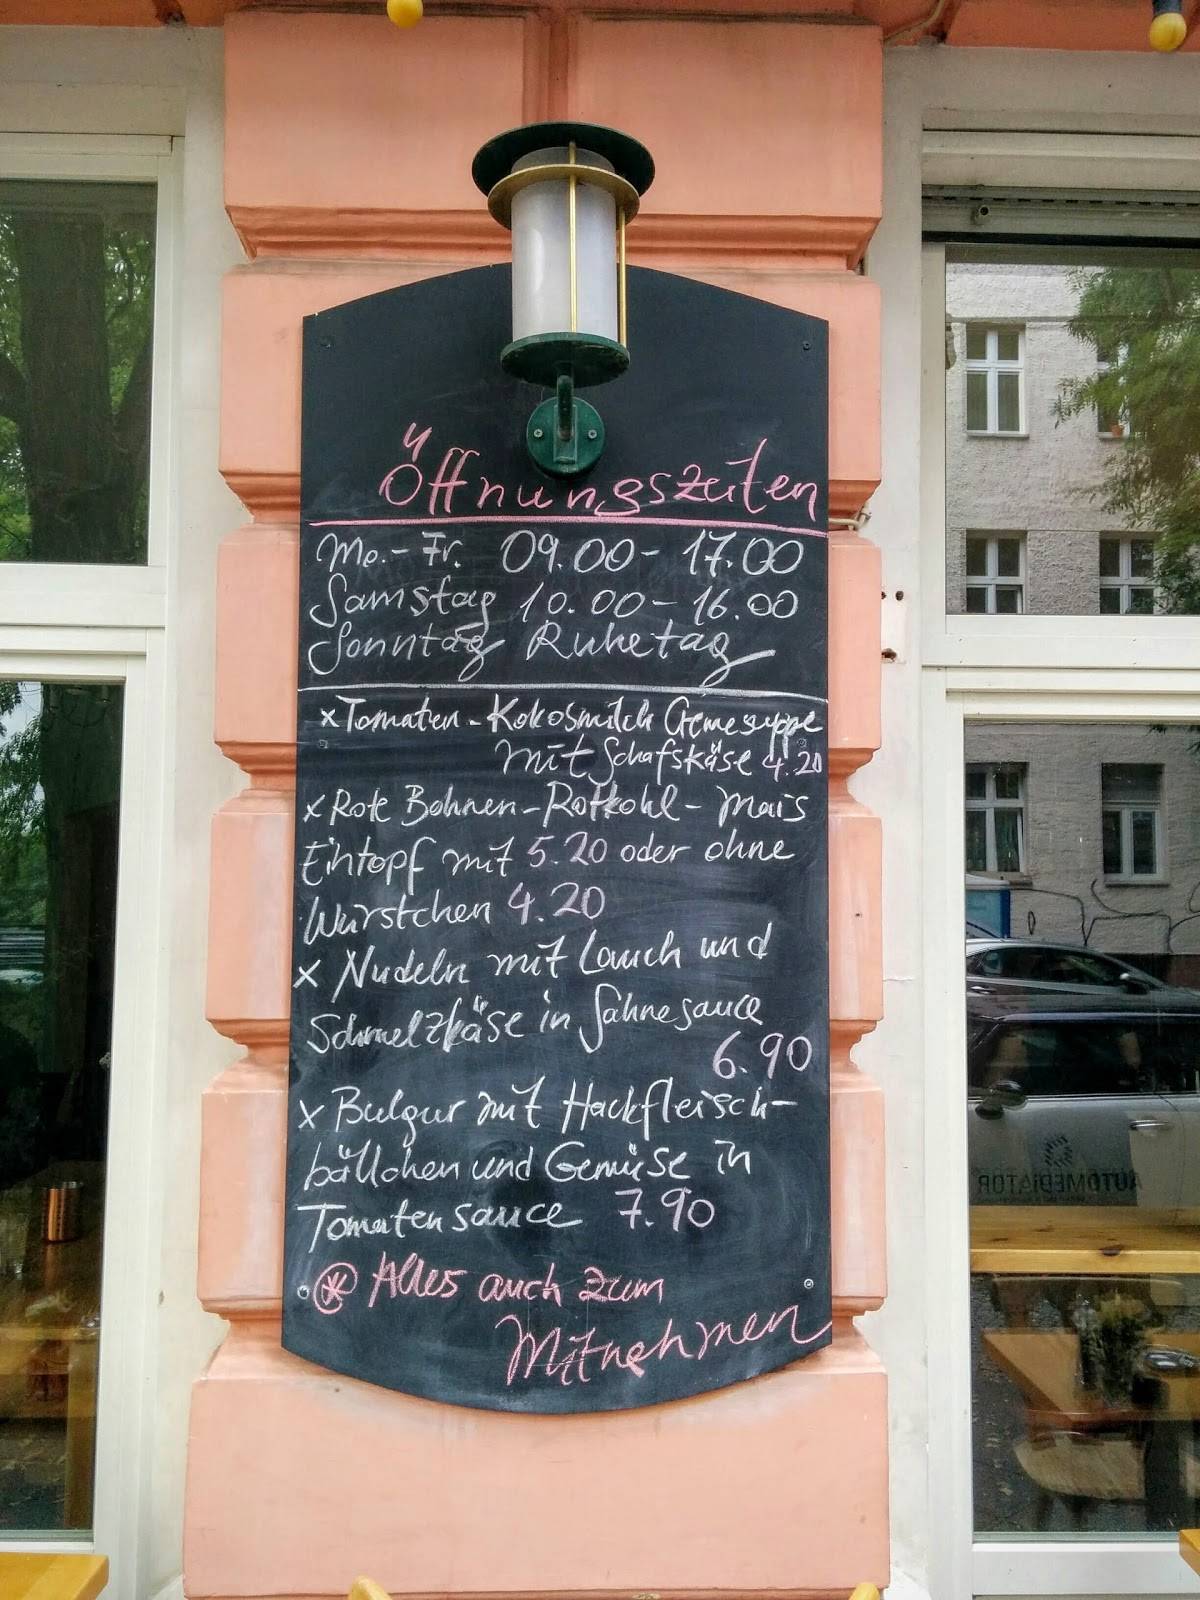 Öffnungszeiten
Mo.-Fr. 09.00-17.00
Samstag 10.00-16.00
Sonntag Ruhetag
x Tomaten-Kokosmilch Gemesuppe
mit Schafskäse 4.20
x Rote Bohnen-Rotkohl-Mais
Eintopf mit 5.20 oder ohne
Würstchen 4.20
x Nudeln mit Lauch und
Schmelzkäse in Sahnesauce
6.90
x Bulgur mit Hackfleisch-
bällchen und Gemüse in
Tomatensauce 7.90
* Alles auch zum
Mitnehmen
AUTOMEDIATOR